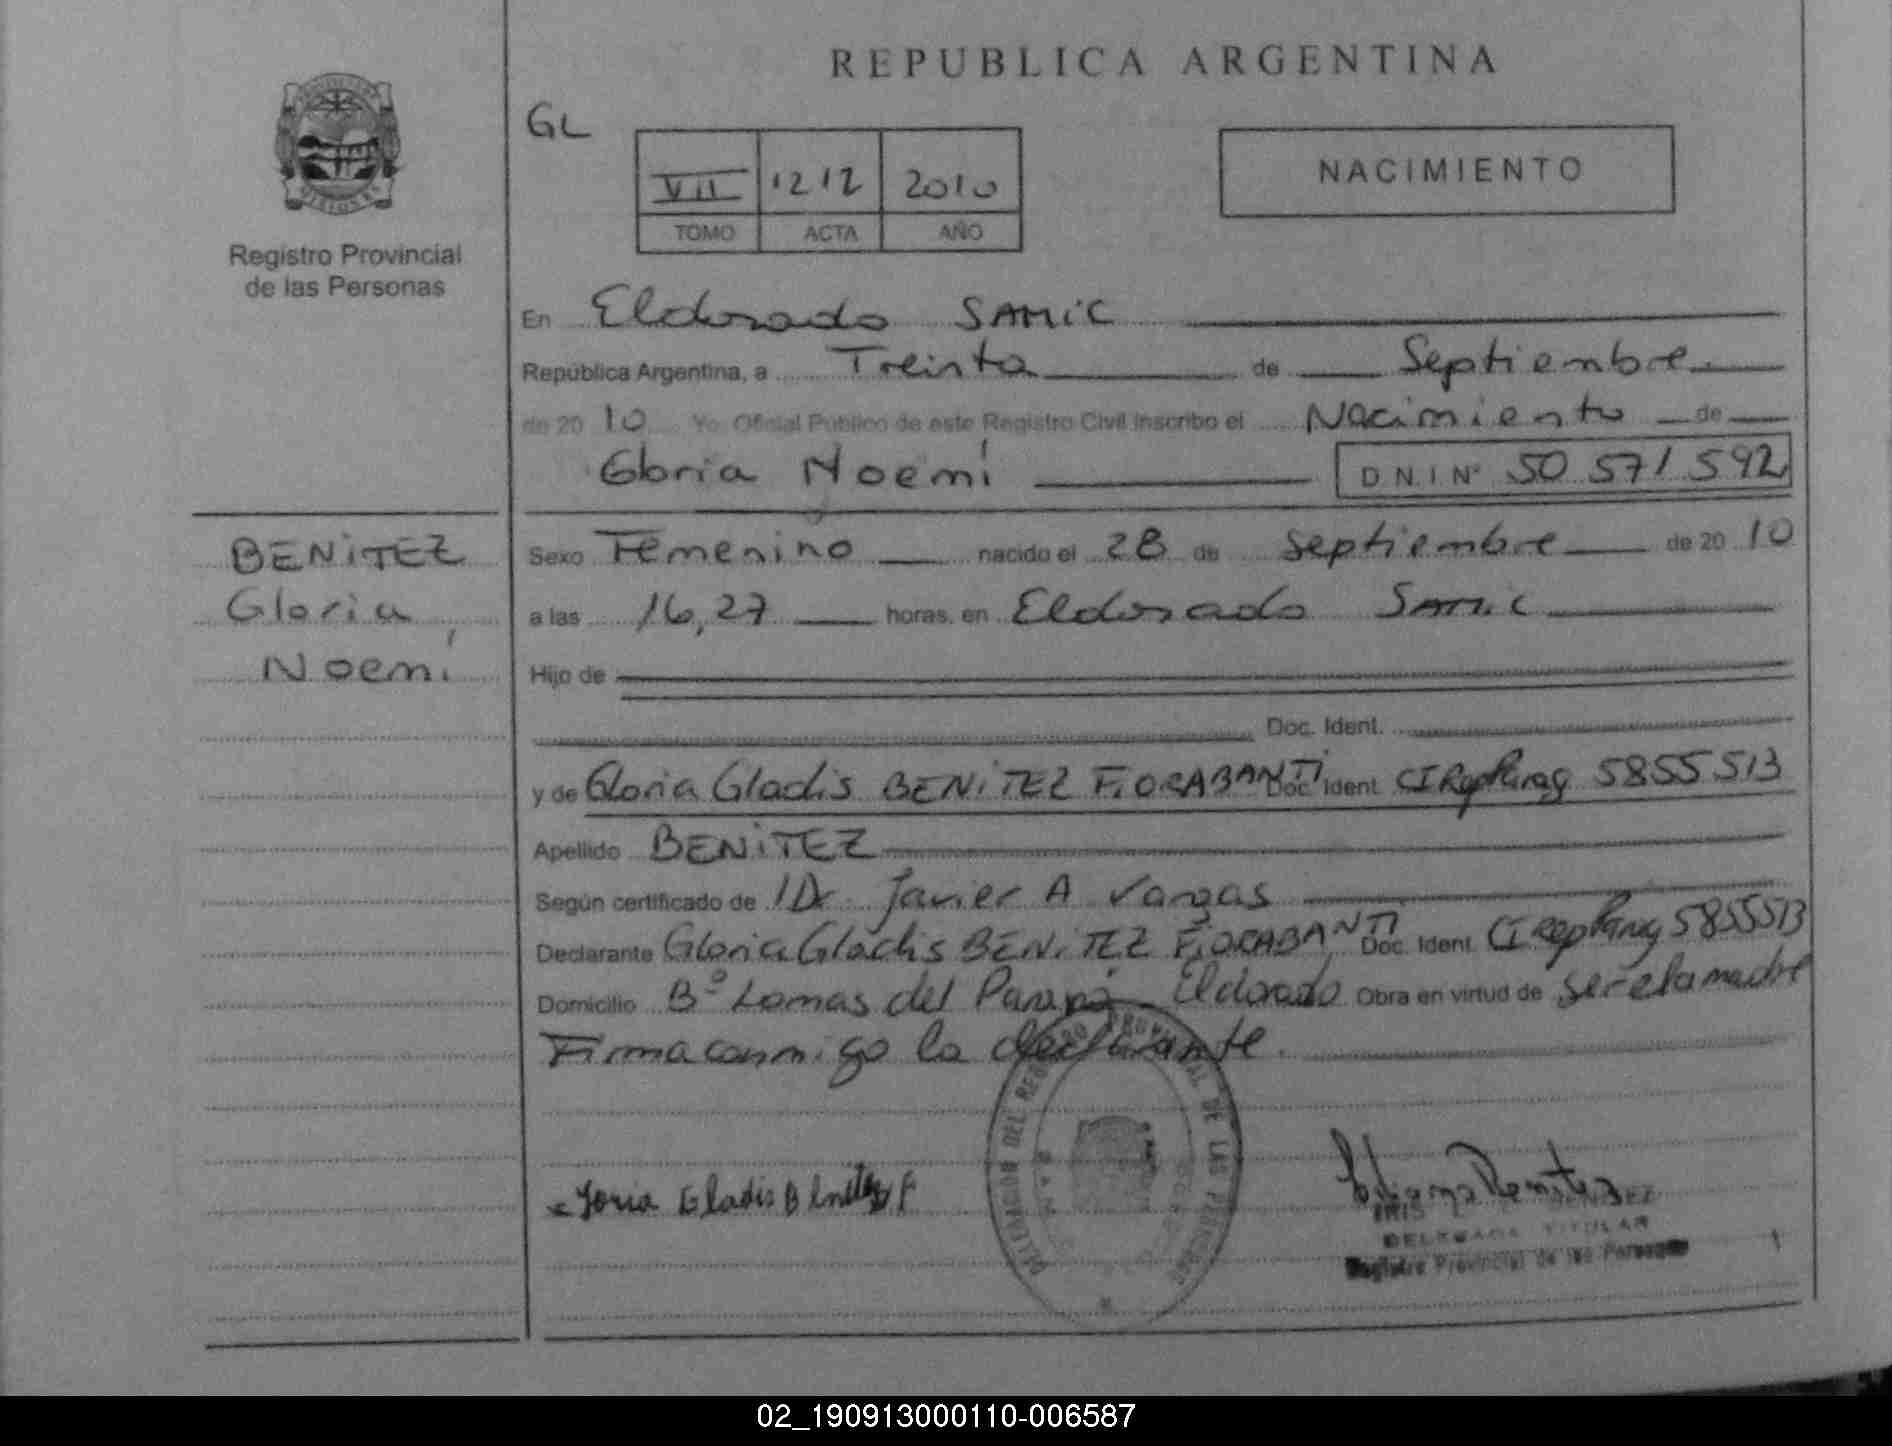 REPUBLICA ARGENTINA
GL
VII 1212 2010
TOMO ACTA AÑO
NACIMIENTO
Registro Provincial
de las Personas
En Eldorado SAMiC
República Argentina, a Treinta de Septiembre
de 20 10 Yo Oficial Público de este Registro Civil inscribo el Nacimiento de
Gloria Noemí D.N.I Nº 50 571 592
BENiTEZ
Gloria
Noemí
Sexo Femenino nacido el 28 de Septiembre de 20 10
a las 16,27 horas, en Eldorado SAMiC
Hijo de
Doc. Ident.
y de Gloria Gladis BENiTEZ FiORABANTi Doc. Ident. CI Rep Parag 5855513
Apellido BENiTEZ
Según certificado de Dr Javier A Vargas
Declarante Gloria Gladis BENiTEZ FiORABANTi Doc. Ident. CI Rep Parag 5855513
Domicilio Bº Lomas del Paraná Eldorado Obra en virtud de ser ela madre
Firma conmigo la declarante.
DELEGACION DEL REGISTRO PROVINCIAL DE LAS PERSONAS
Gloria Gladis Benitez F
IRIS BENITEZ
DELEGADA TITULAR
Registro Provincial de las Personas
02_190913000110-006587